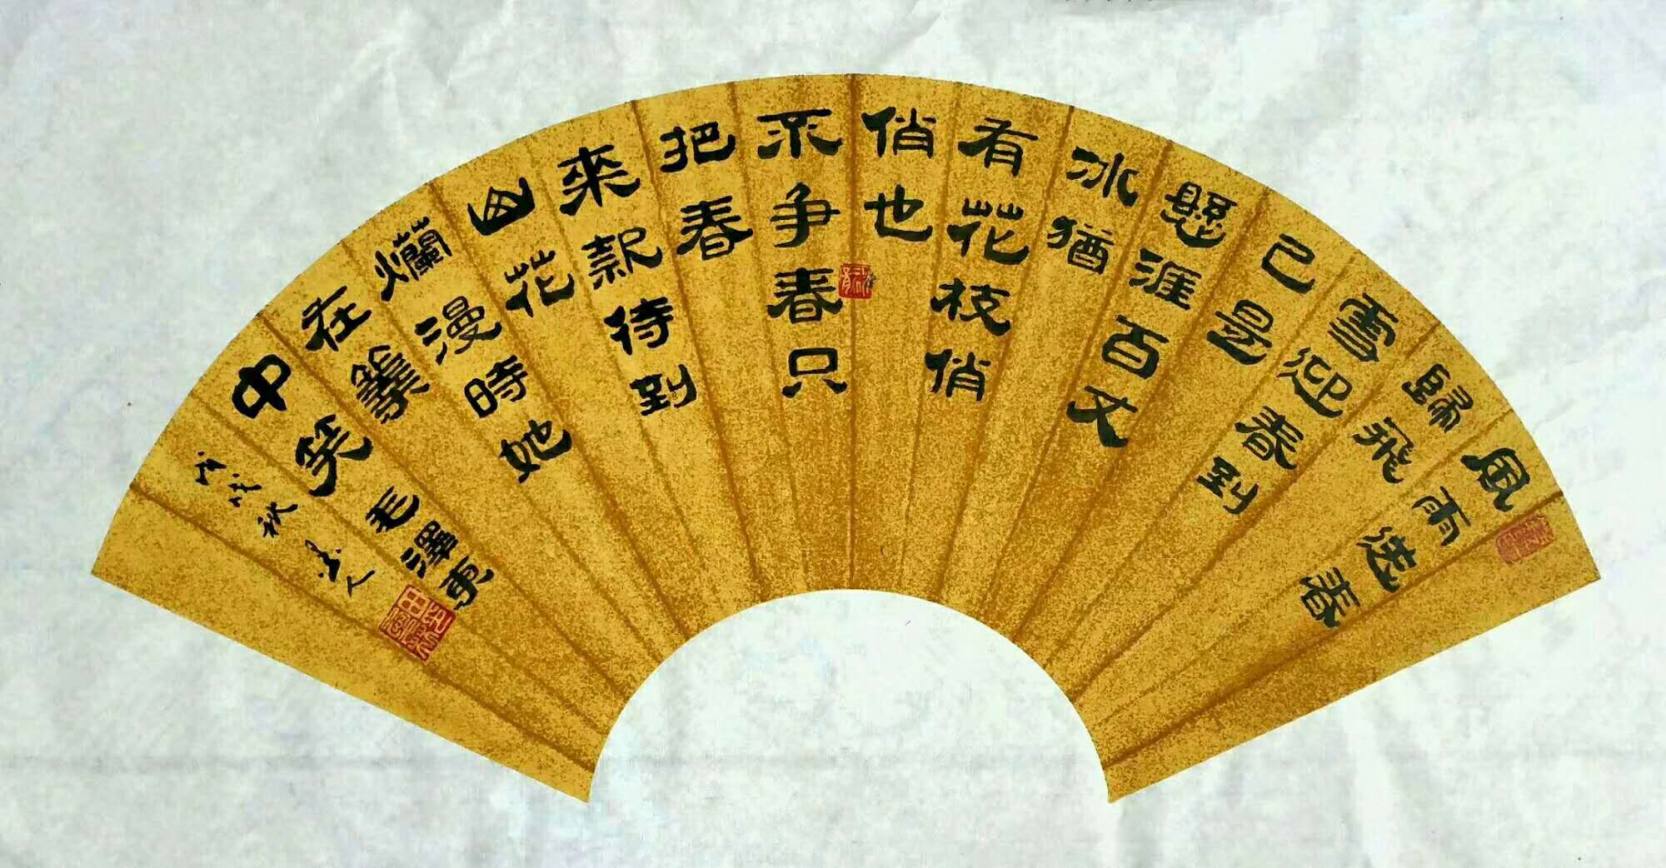 風雨送春
歸飛
雪迎春到
已是
懸涯百丈
冰猶
有花枝俏
俏也
不争春只
把春
來報待到
山花
爛漫時她
在叢
中笑毛澤東
戊戌秋